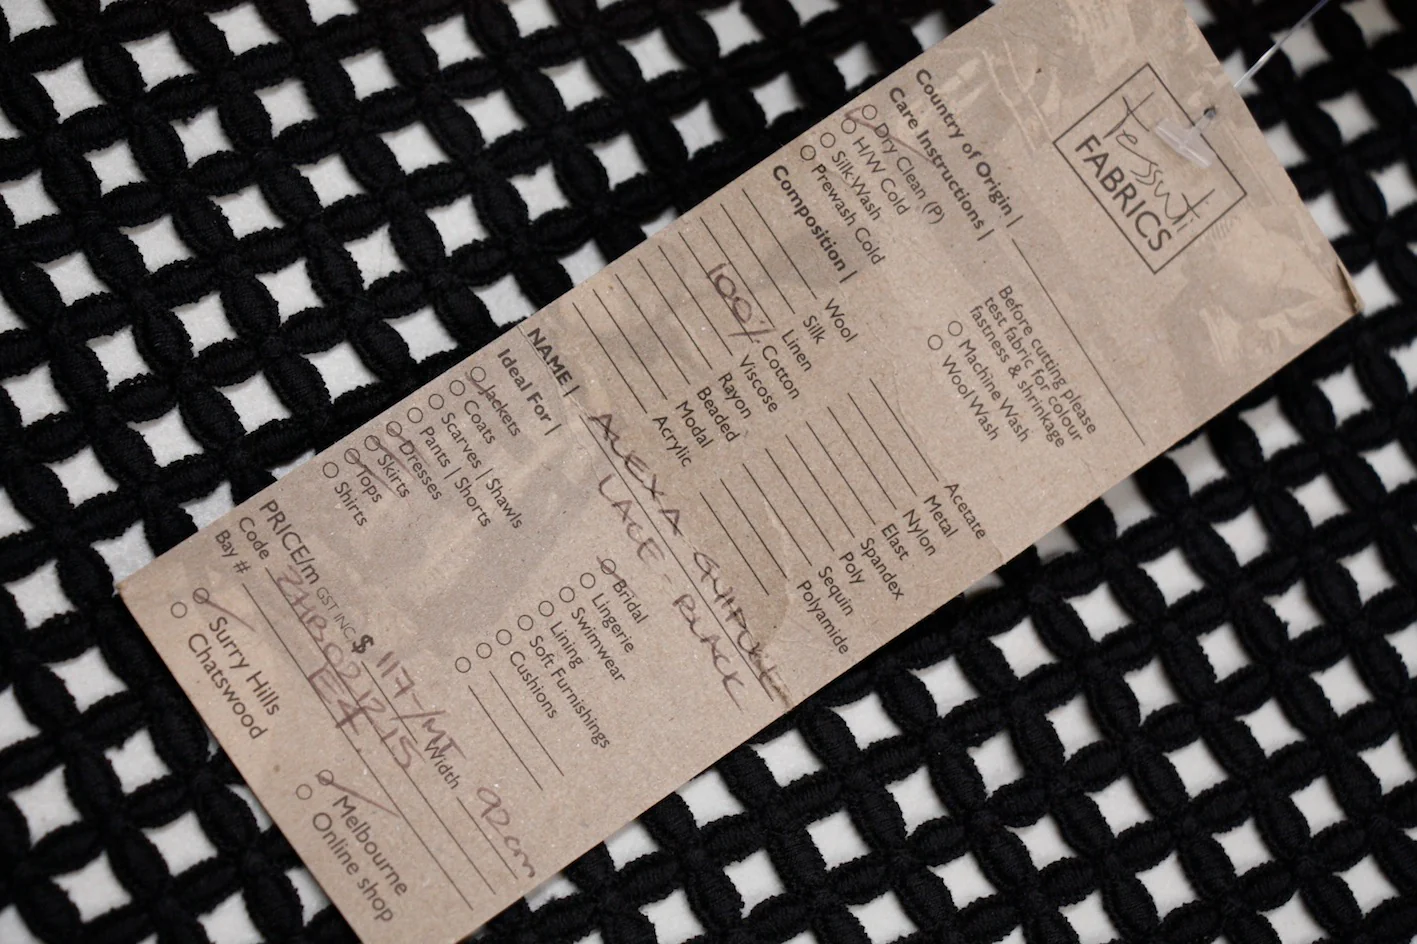 Tessuti
FABRICS
Country of Origin |
Care Instructions |
Before cutting please
test fabric for colour
fastness & shrinkage
Dry Clean (P)
H/W Cold
Silk Wash
Prewash Cold
Machine Wash
Wool Wash
Composition |
Wool
Silk
Linen
100% Cotton
Viscose
Rayon
Beaded
Modal
Acrylic
Acetate
Metal
Nylon
Elast
Spandex
Poly
Sequin
Polyamide
NAME | ALEXA GUIPURE
LACE - BLACK
Ideal For |
Jackets
Coats
Scarves | Shawls
Pants | Shorts
Dresses
Skirts
Tops
Shirts
Bridal
Lingerie
Swimwear
Lining
Soft Furnishings
Cushions
PRICE/m GST INC. $ 117/MT Width 92cm
Code
Bay #
Surry Hills
Chatswood
Melbourne
Online shop